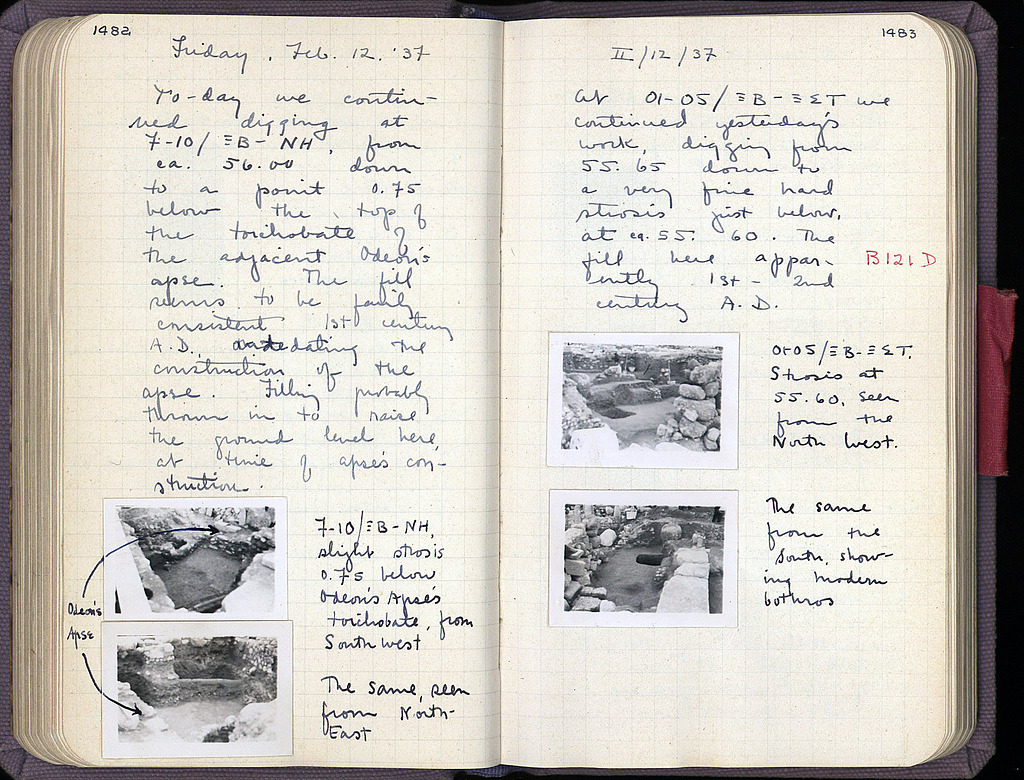 1482
Friday, Feb. 12. '37
To-day we contin-
ued digging at
7-10/ΞB-NH, from
ca. 56.00 down
to a point 0.75
below the top of
the toichobate of
the adjacent Odeon's
apse. The fill
seems to be fairly
consistent 1st century
A.D. dating the
construction of the
apse. Filling probably
thrown in to raise
the ground level here,
at time of apse's con-
struction.
7-10/ΞB-NH,
slight strosis
0.75 below
Odeon's Apse's
toichobate, from
South west
Odeon's
Apse
The same, seen
from North-
East
1483
II/12/37
At 01-05/ΞB-ΞΣT we
continued yesterday's
work, digging from
55.65 down to
a very fine hard
strosis just below,
at ca. 55.60. The
fill here appar-
ently 1st-2nd
century A.D.
B121D
01-05/ΞB-ΞΣT.
Strosis at
55.60, seen
from the
North West.
The same
from the
South, show-
ing modern
bothros